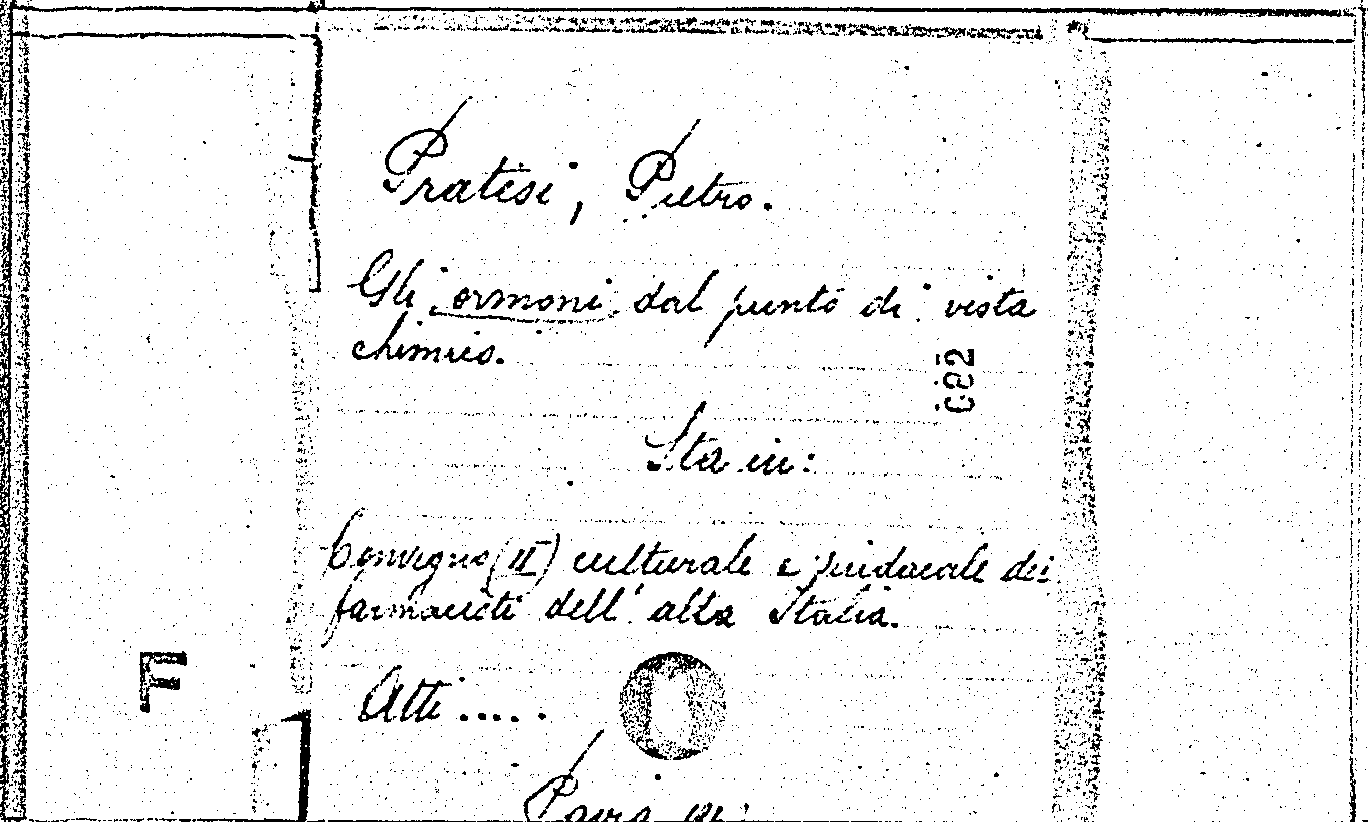 Pratesi, Pietro.
Gli ormoni dal punto di vista
chimico.
Sta in:
Convegno (II) culturale e sindacale dei
farmacisti dell'alta Italia.
F
Atti .....